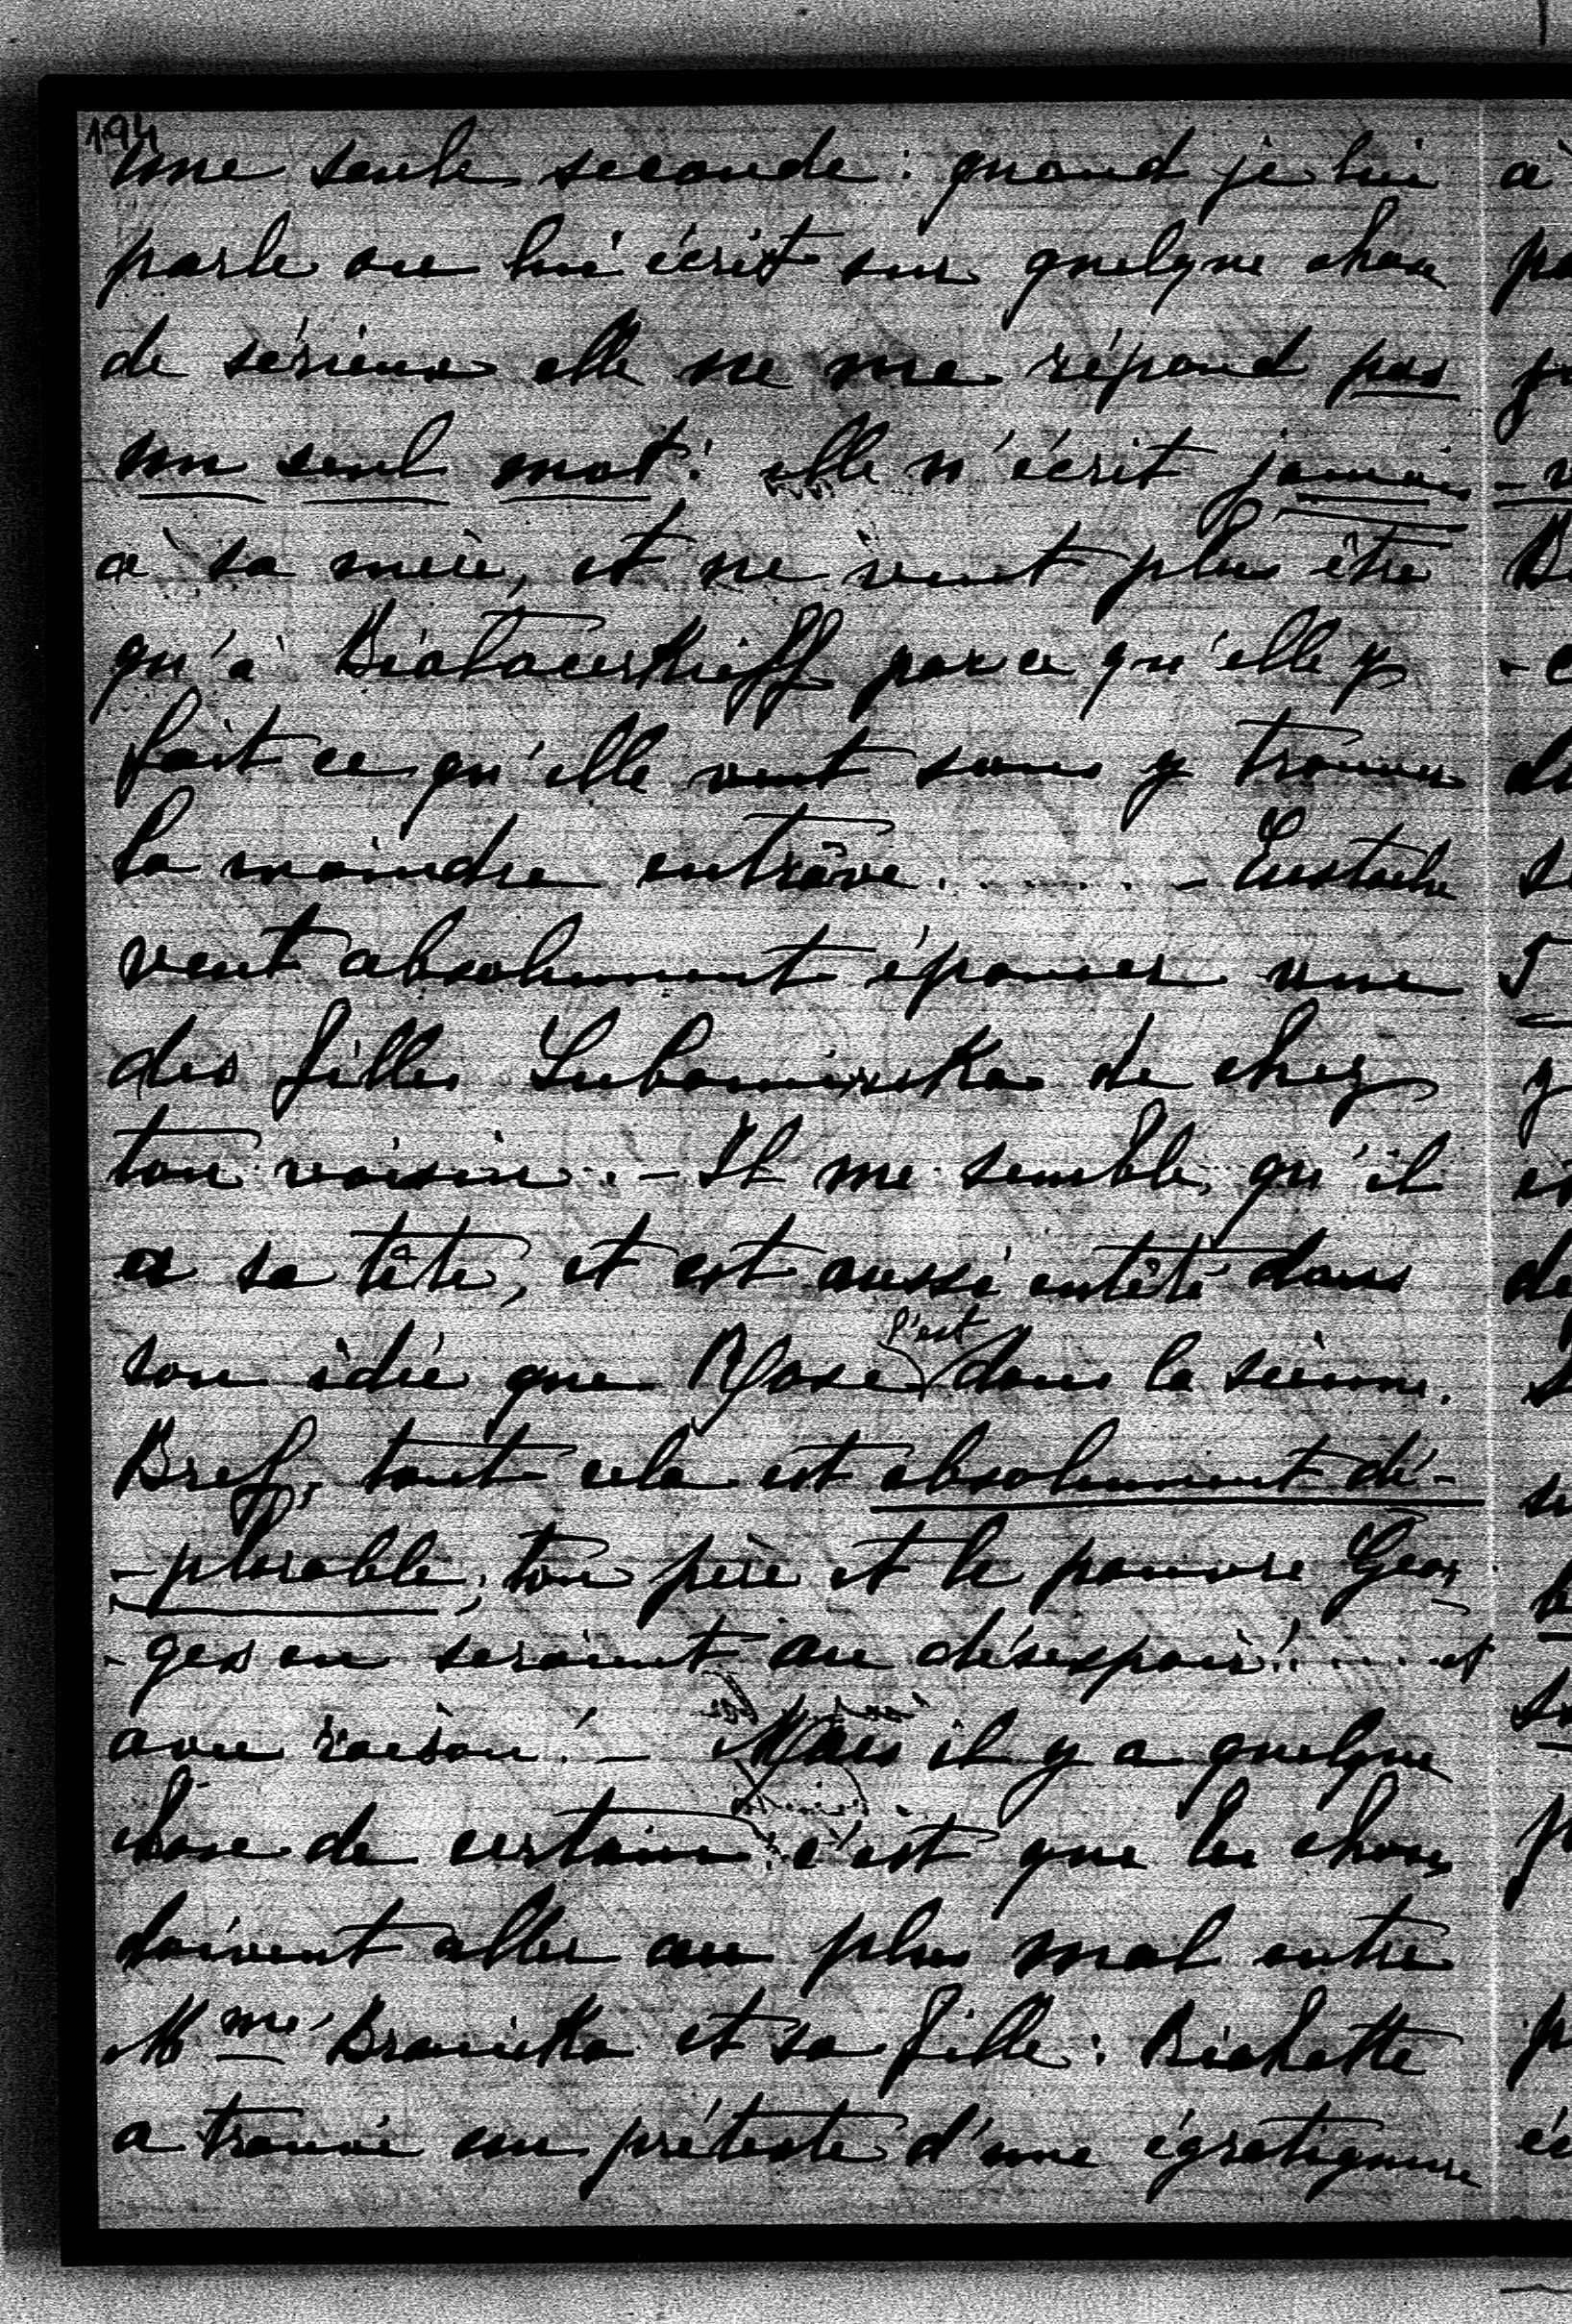 194
une seule seconde : quand je lui
parle ou lui écrit sur quelque chose
de sérieux elle ne me répond pas
un seul mot : elle n'écrit jamais
à sa mère, et ne veut plus être
qu'à Bialacerkieff parce qu'elle y
fait ce qu'elle veut sans y trouver
la moindre entrâve . . . . . . - Eustache
veut absolument épouser une
des filles Lubomirska de chez
ton voisin . - Il me semble, qu'il
a sa tête, et est aussi entêté dans
son idée que Rose l'est dans la sienne.
Bref, tout cela est absolument dé-
-plorable, ton père et le pauvre Geor
-ges en seraient au désespoir ! . . . . et
avec raison ! - Mais il y a quelque
chose de certain : c'est que les choses
doivent aller au plus mal entre
Mme Branicka et sa fille : Bichette
a trouvé un préteste d'une égratignure